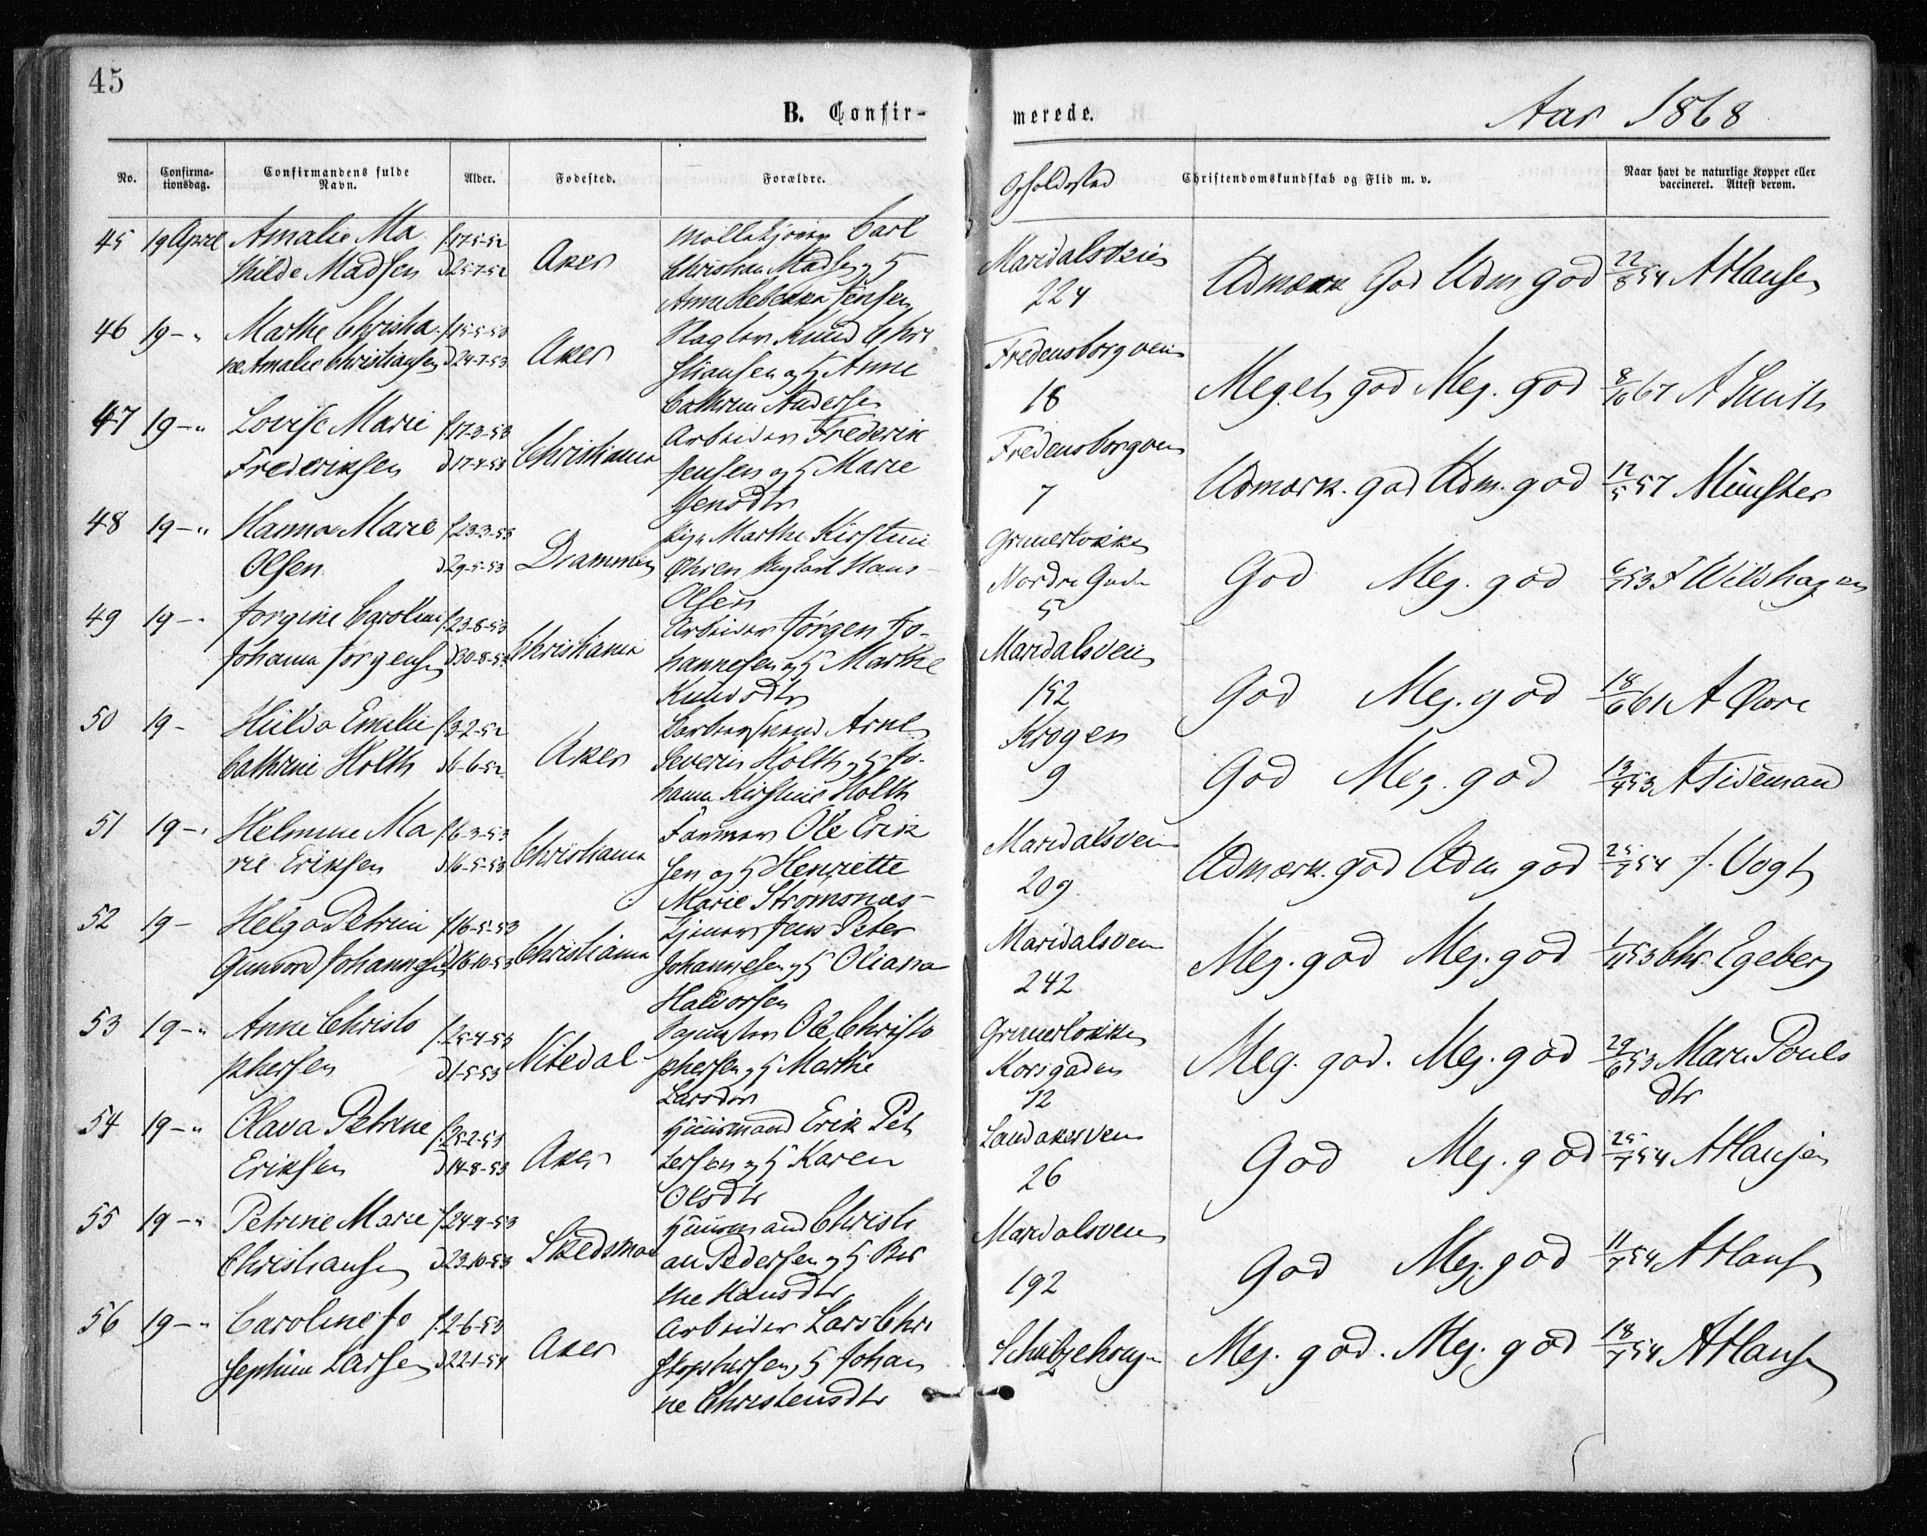 45
B. Confir-
merede.
Aar 1868
No.
Confirma-
tionsdag.
Confirmandens fulde
Navn.
Alder.
Fødested.
Forældre.
Opholdssted
Christendomskundskab og Flid m. v.
Naar havt de naturlige Kopper eller
vaccineret. Attest derom.
45 19 April Amalie Ma f. 17-5-52 Carl
thilde Madsen d 25-7-52 Aker Christian Madsen og H
Anne Rebekka Jensen
Maridalsveien
224
Udmærk God Udm god 22/8 54 A Hansen
46 19 - " Marthe Christia- f. 15-5-53 Knud Chri
ne Amalie Christiansen d 24-7-53 Aker stiansen og H Anne
Cathrine Andersen
Fredensborgveien
18
Meget god Meg. god 8/10 67 A Smith
47 19 - " Lovise Marie f. 17-3-53 Arbeider Frederik
Frederiksen d 17-4-53 Christiania Jensen og H Marie
Jensdtr
Fredensborgvei
7
Udmærk. god Udm. god 12/5 57 Münster
48 19 - " Hanna Marie f. 23-3-53 Pige Marthe Kirstine
Olsen d 29-5-53 Drammen Hans
Olsen
Grunerløkken
Nordre Gade
5
God Meg. god 6/ 53 F Wildhagen
49 19 - " Jørgine Caroline f. 23-8-53 Arbeider Jørgen Jo-
Johanna Jørgensen d 30-8-5 Christiania hannesen og H Marthe
Knudsdtr
Maridalsveien
152
God Meg. god 18/6 61 A Øvre
50 19 - Hilda Emilie f 3-2-52 Arne
Cathrine Holth d 6-6-52 Aker Severin Holth og H Jo-
hanna Kirstine Holth
Krogen
9
God Meg. god 13/4 53 A Tidemand
51 19 - " Helmine Ma f 6-3-53 Farver Ole Erik
rie Eriksen d 16-5-53 Christiania sen og H Henriette
Marie Strømsnæs-
Maridalsvei
209
Udmærk. god Udm god 25/7 54 J. Vogt
52 19 - Helga Petrine f 16-5-53 Tjener Jens Peter
Gunvord Johannesen d 16-10-53 Christiania Johannesen og H Oliana
Halvorsen
Maridalsvein
242
Meg. god Meg. god 1/11 53 Chr. Egeberg
53 19 - " Anne Christo f. 25-4-53 Ole Christo
phersen d 1-5-53 Nitedal phersen og H Marthe
Larsdtr
Grunerløkken
Korsgaden
12
Meg. god. Meg. god 29/6 53 Mari Pouls
dtr
54 19 - " Olava Petrine f. 25-2-53 Huusmand Erik Pet
Eriksen d 14-8-53 Aker tersen og H Karen
Olsdtr
Sandakerveien
26
God Meg. god 25/7 54 A Hansen
55 19 - " Petrine Marie f. 24-9-53 Huusmand Christi
Christiansen d 23-10-53 Skedsmo an Pedersen og H. Ber
the Hansdtr
Maridalsveien
192
God Meg. god 11/7 54 A Hansen
56 19 - " Caroline Jo f. 2-6-53 Arbeider Lars Chri
sephine Larsen d 22-1-54 Aker stophersen og H Johan
ne Christensdtr
Meg. god. Meg. god 18/7 54 A Hansen